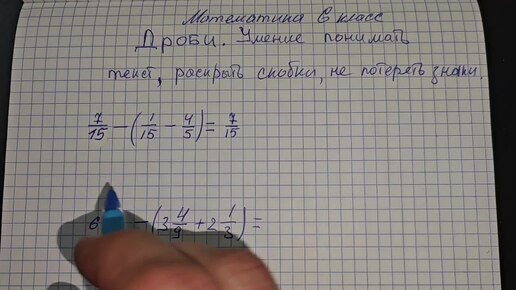 Математика 6 класс
Дроби. Умение понимать
текст, раскрыть скобки, не потерять знаки.
7/15 − (1/15 − 4/5) = 7/15
6 − (3 4/9 + 2 1/3) =